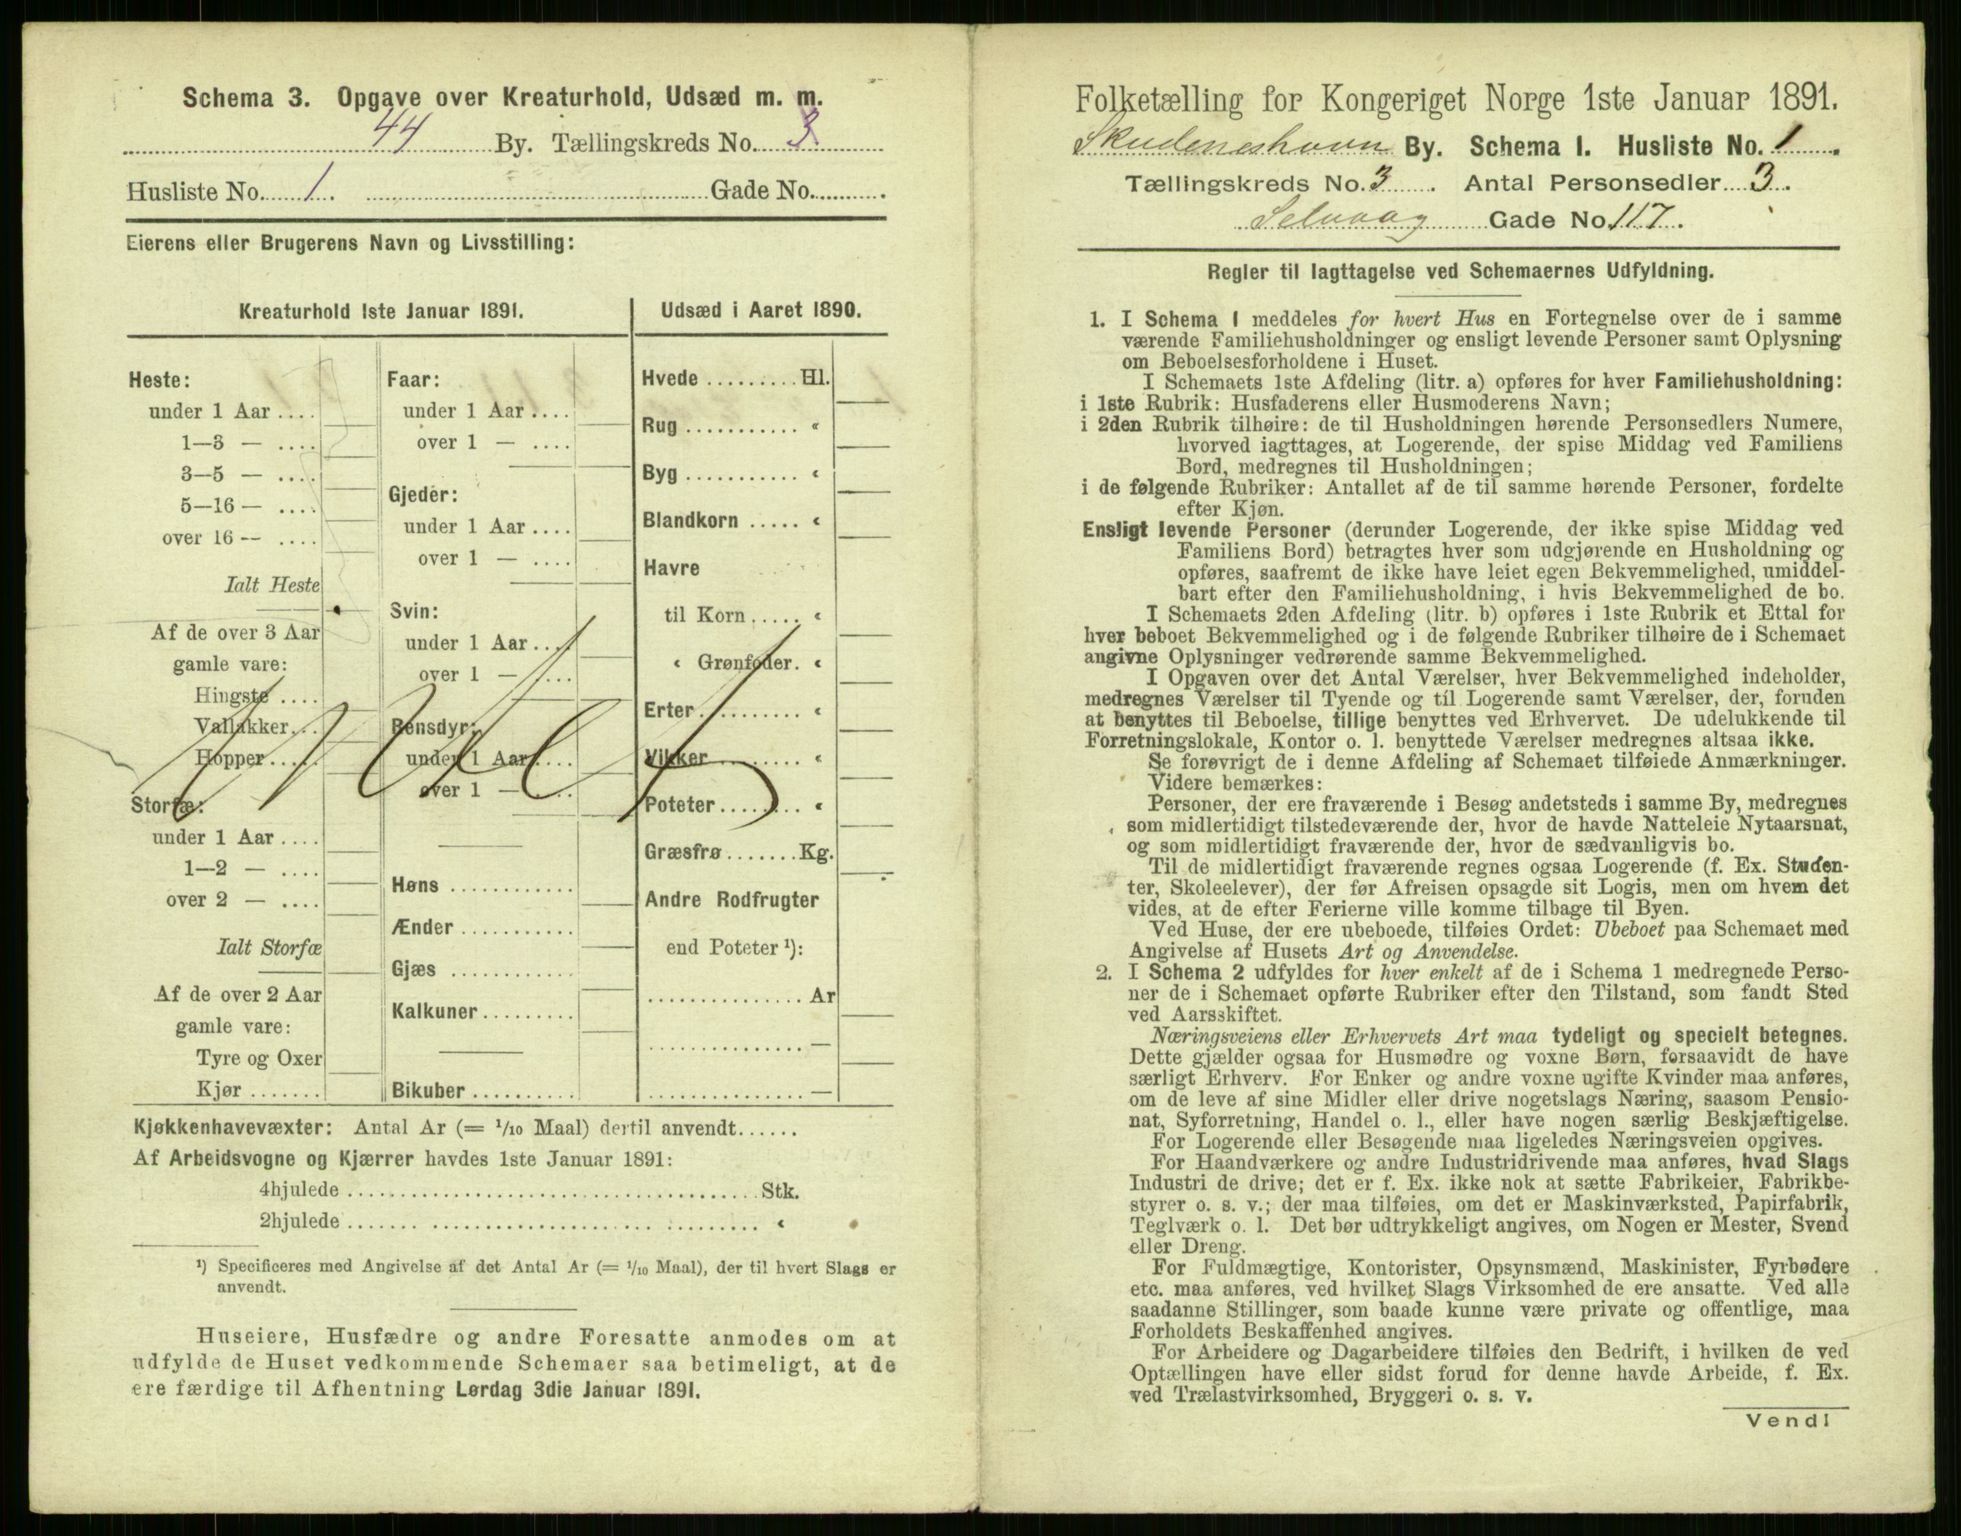 Schema 3. Opgave over Kreaturhold, Udsæd m. m.
44 By. Tællingskreds No. 3
Husliste No. 1. Gade No. .
Eierens eller Brugerens Navn og Livsstilling:
Kreaturhold 1ste Januar 1891.
Heste:
under 1 Aar ....
1—3 — ....
3—5 — ....
5—16 — ....
over 16 — ....
Ialt Heste
Af de over 3 Aar
gamle vare:
Hingste ....
Vallakker ...
Hopper ....
Storfæ:
under 1 Aar ....
1—2 — ....
over 2 — ....
Ialt Storfæ
Af de over 2 Aar
gamle vare:
Tyre og Oxer
Kjør .......
Faar:
under 1 Aar ....
over 1 — ....
Gjeder:
under 1 Aar ....
over 1 — ....
Svin:
under 1 Aar ....
over 1 — ....
Rensdyr:
under 1 Aar ....
over 1 — ....
Høns ............
Ænder ...........
Gjæs ............
Kalkuner .........
Bikuber ..........
Udsæd i Aaret 1890.
Hvede ......... Hl.
Rug ........... «
Byg ........... «
Blandkorn ..... «
Havre
til Korn ..... «
« Grønfoder. «
Erter ......... «
Vikker ........ «
Poteter ........ «
Græsfrø ....... Kg.
Andre Rodfrugter
end Poteter ¹):
............... Ar
............... —
............... —
Kjøkkenhavevæxter: Antal Ar (= 1/10 Maal) dertil anvendt......
Af Arbeidsvogne og Kjærrer havdes 1ste Januar 1891:
4hjulede ........................................ Stk.
2hjulede ........................................ «
¹) Specificeres med Angivelse af det Antal Ar (= 1/10 Maal), der til hvert Slags er
anvendt.
Huseiere, Husfædre og andre Foresatte anmodes om at
udfylde de Huset vedkommende Schemaer saa betimeligt, at de
ere færdige til Afhentning Lørdag 3die Januar 1891.
Folketælling for Kongeriget Norge 1ste Januar 1891.
Skudeneshavn By. Schema I. Husliste No. 1.
Tællingskreds No. 3. Antal Personsedler 3.
Selvaag Gade No. 117.
Regler til Iagttagelse ved Schemaernes Udfyldning.
1. I Schema 1 meddeles for hvert Hus en Fortegnelse over de i samme
værende Familiehusholdninger og ensligt levende Personer samt Oplysning
om Beboelsesforholdene i Huset.
I Schemaets 1ste Afdeling (litr. a) opføres for hver Familiehusholdning:
i 1ste Rubrik: Husfaderens eller Husmoderens Navn;
i 2den Rubrik tilhøire: de til Husholdningen hørende Personsedlers Numere,
hvorved iagttages, at Logerende, der spise Middag ved Familiens
Bord, medregnes til Husholdningen;
i de følgende Rubriker: Antallet af de til samme hørende Personer, fordelte
efter Kjøn.
Ensligt levende Personer (derunder Logerende, der ikke spise Middag ved
Familiens Bord) betragtes hver som udgjørende en Husholdning og
opføres, saafremt de ikke have leiet egen Bekvemmelighed, umiddel-
bart efter den Familiehusholdning, i hvis Bekvemmelighed de bo.
I Schemaets 2den Afdeling (litr. b) opføres i 1ste Rubrik et Ettal for
hver beboet Bekvemmelighed og i de følgende Rubriker tilhøire de i Schemaet
angivne Oplysninger vedrørende samme Bekvemmelighed.
I Opgaven over det Antal Værelser, hver Bekvemmelighed indeholder,
medregnes Værelser til Tyende og til Logerende samt Værelser, der, foruden
at benyttes til Beboelse, tillige benyttes ved Erhvervet. De udelukkende til
Forretningslokale, Kontor o. l. benyttede Værelser medregnes altsaa ikke.
Se forøvrigt de i denne Afdeling af Schemaet tilføiede Anmærkninger.
Videre bemærkes:
Personer, der ere fraværende i Besøg andetsteds i samme By, medregnes
som midlertidigt tilstedeværende der, hvor de havde Natteleie Nytaarsnat,
og som midlertidigt fraværende der, hvor de sædvanligvis bo.
Til de midlertidigt fraværende regnes ogsaa Logerende (f. Ex. Studen-
ter, Skoleelever), der før Afreisen opsagde sit Logis, men om hvem det
vides, at de efter Ferierne ville komme tilbage til Byen.
Ved Huse, der ere ubeboede, tilføies Ordet: Ubeboet paa Schemaet med
Angivelse af Husets Art og Anvendelse.
2. I Schema 2 udfyldes for hver enkelt af de i Schema 1 medregnede Perso-
ner de i Schemaet opførte Rubriker efter den Tilstand, som fandt Sted
ved Aarsskiftet.
Næringsveiens eller Erhvervets Art maa tydeligt og specielt betegnes.
Dette gjælder ogsaa for Husmødre og voxne Børn, forsaavidt de have
særligt Erhverv. For Enker og andre voxne ugifte Kvinder maa anføres,
om de leve af sine Midler eller drive nogetslags Næring, saasom Pensio-
nat, Syforretning, Handel o. l., eller have nogen særlig Beskjæftigelse.
For Logerende eller Besøgende maa ligeledes Næringsveien opgives.
For Haandværkere og andre Industridrivende maa anføres, hvad Slags
Industri de drive; det er f. Ex. ikke nok at sætte Fabrikeier, Fabrikbe-
styrer o. s. v.; der maa tilføies, om det er Maskinværksted, Papirfabrik,
Teglværk o. l. Det bør udtrykkeligt angives, om Nogen er Mester, Svend
eller Dreng.
For Fuldmægtige, Kontorister, Opsynsmænd, Maskinister, Fyrbødere
etc. maa anføres, ved hvilket Slags Virksomhed de ere ansatte. Ved alle
saadanne Stillinger, som baade kunne være private og offentlige, maa
Forholdets Beskaffenhed angives.
For Arbeidere og Dagarbeidere tilføies den Bedrift, i hvilken de ved
Optællingen have eller sidst forud for denne havde Arbeide, f. Ex.
ved Trælastvirksomhed, Bryggeri o. s. v.
Vend!